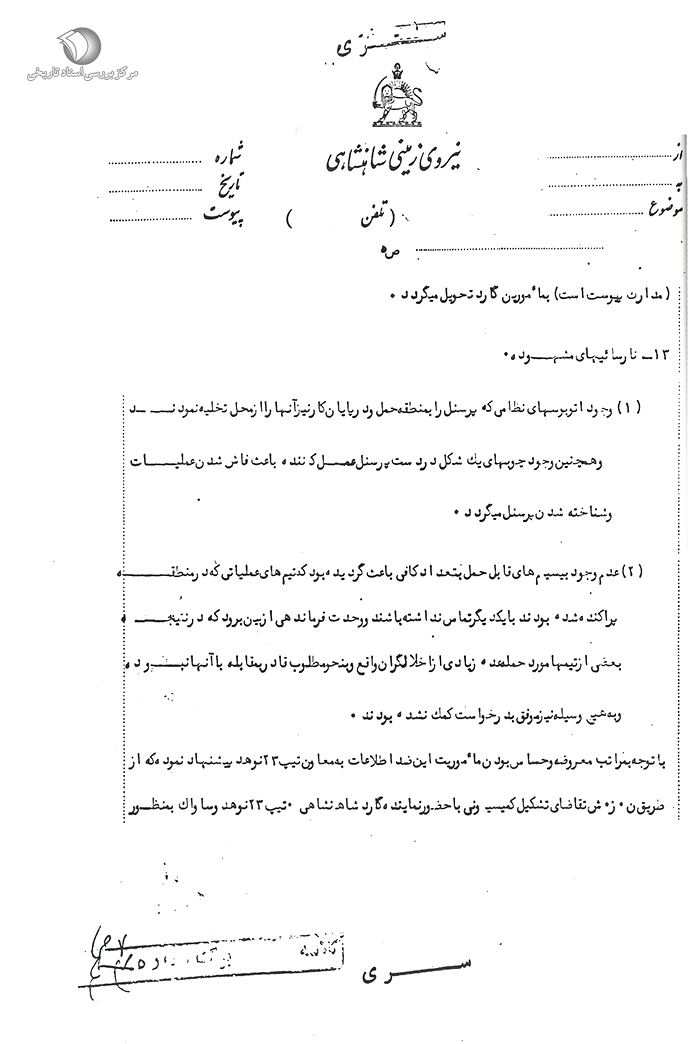 مرکز بررسی اسناد تاریخی
سری
نیروی زمینی شاهنشاهی
از
به
موضوع
شماره
تاریخ
پیوست
( تلفن )
ص ه
( مدارك پیوست است ) بما ٔمورین گارد تحویل میگردد ٠
١٣ـ نارسائیهای مشهـــوده ٠
(١) وجود اتوبوسهای نظامی که پرسنل را بمنطقه حمل ودرپایان کارنیزآنها راازمحل تخلیه نمودنـــد
وهمچنین وجود چوبهای یك شکل دردست پرسنل عمـل کننده باعث فاش شدن عملیـــات
وشناخته شدن پرسنل میگردد ٠
(٢) عدم وجود بیسیم های قابل حمل بتعداد کافی باعث گردیده بود که تیم های عملیاتی که درمنطقـــه
پراکنده شده بودند بایکدیگرتماس نداشته باشند ووحدت فرماندهی ازبین برود که درنتیجـــه
بعضی ازتیمها مورد حمله عده زیادی ازاخلالگران واقع وبنحومطلوب قادربمقابله باآنها نبـــوده
وبه هیچ وسیله نیزموفق بدرخواست کمك نشده بودند ٠
با توجه بمراتب معروضه وحساس بودن ما ٔموریت این ضد اطلاعات به معاون تیپ ٢٣ نوهد پیشنهاد نموده که از
طریق ن ٠ ز ٠ ش تقاضای تشکیل کمیسیونی باحضورنماینده گارد شاهنشاهی ٠ تیپ ٢٣ نوهد وساواك بمنظـــور
ســـری